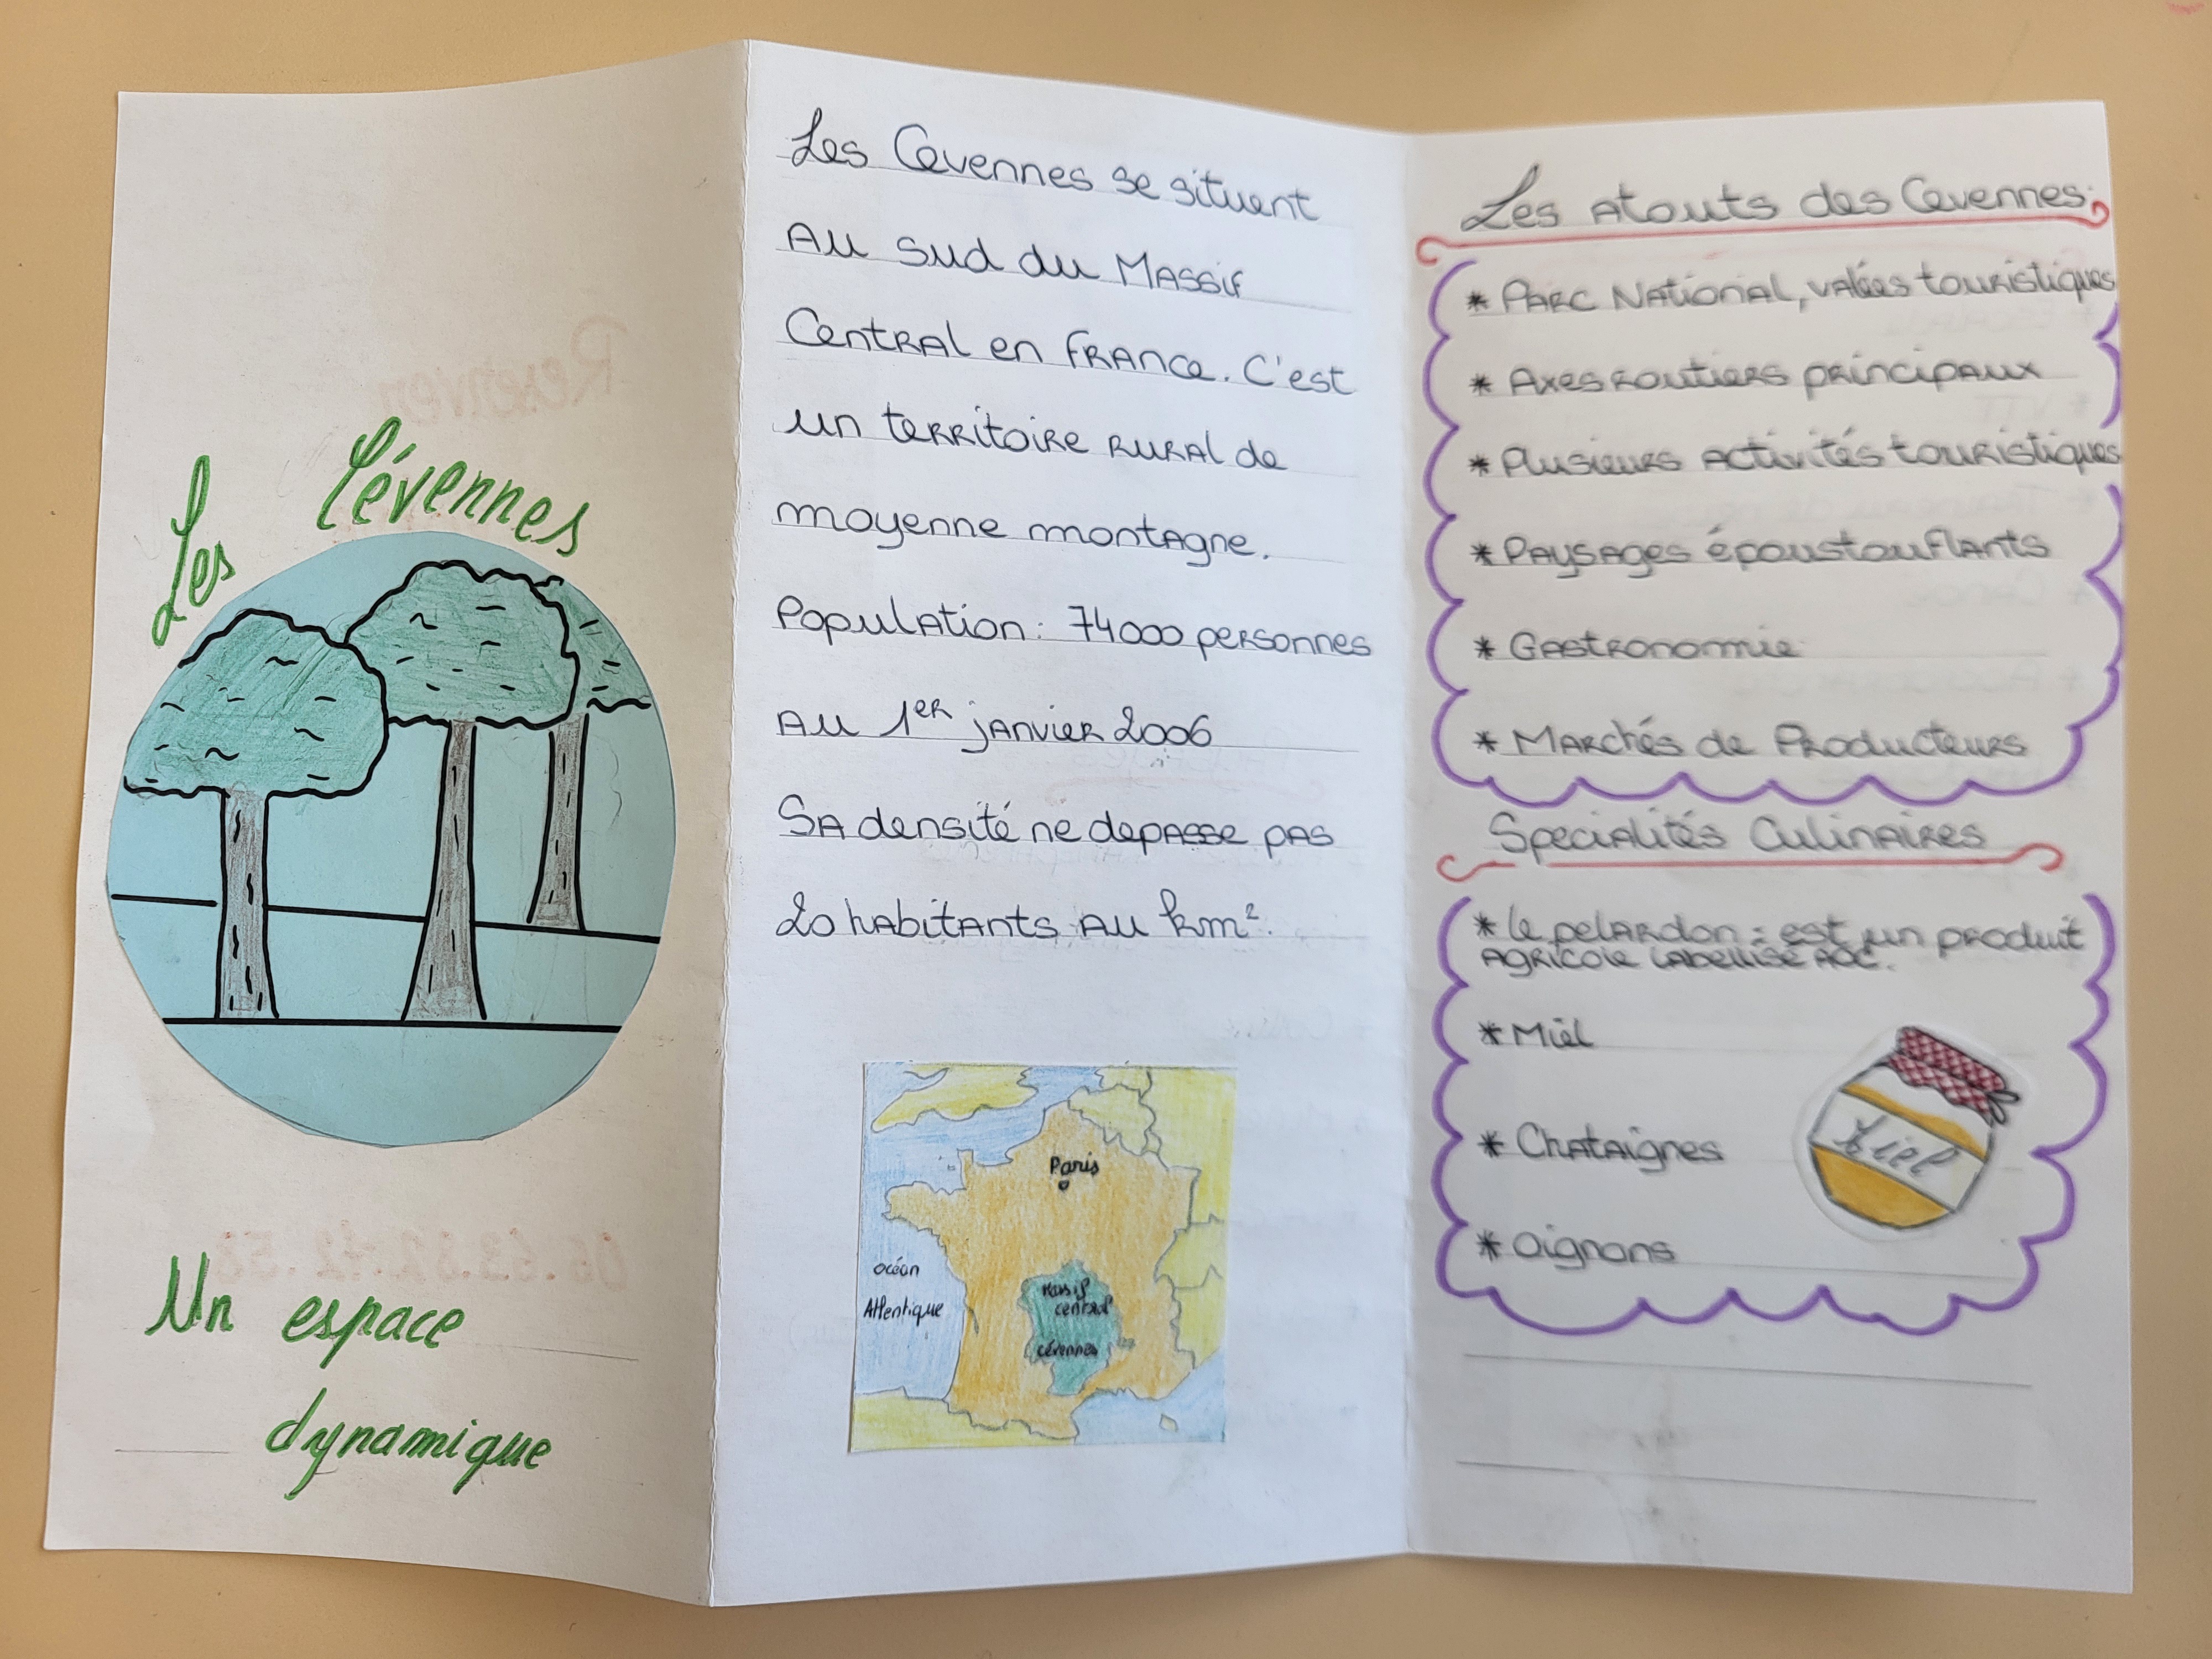 Les Cévennes
Un espace
dynamique
Les Cevennes se situent
Au sud du Massif
Central en France. C'est
un territoire rural de
moyenne montagne.
Population : 74000 personnes
Au 1er janvier 2006
Sa densité ne depasse pas
20 habitants au km².
Paris
océan
Atlentique
Massif
central
cévennes
Les atouts des Cevennes:
* Parc National, valées touristiques
* Axes routiers principaux
* Plusieurs activités touristiques
* Paysages époustouflants
* Gastronomie
* Marchés de Producteurs
Specialités Culinaires
* le pelardon : est un produit
agricole labellisé AOC.
* Miel
* Chataignes
* Oignons